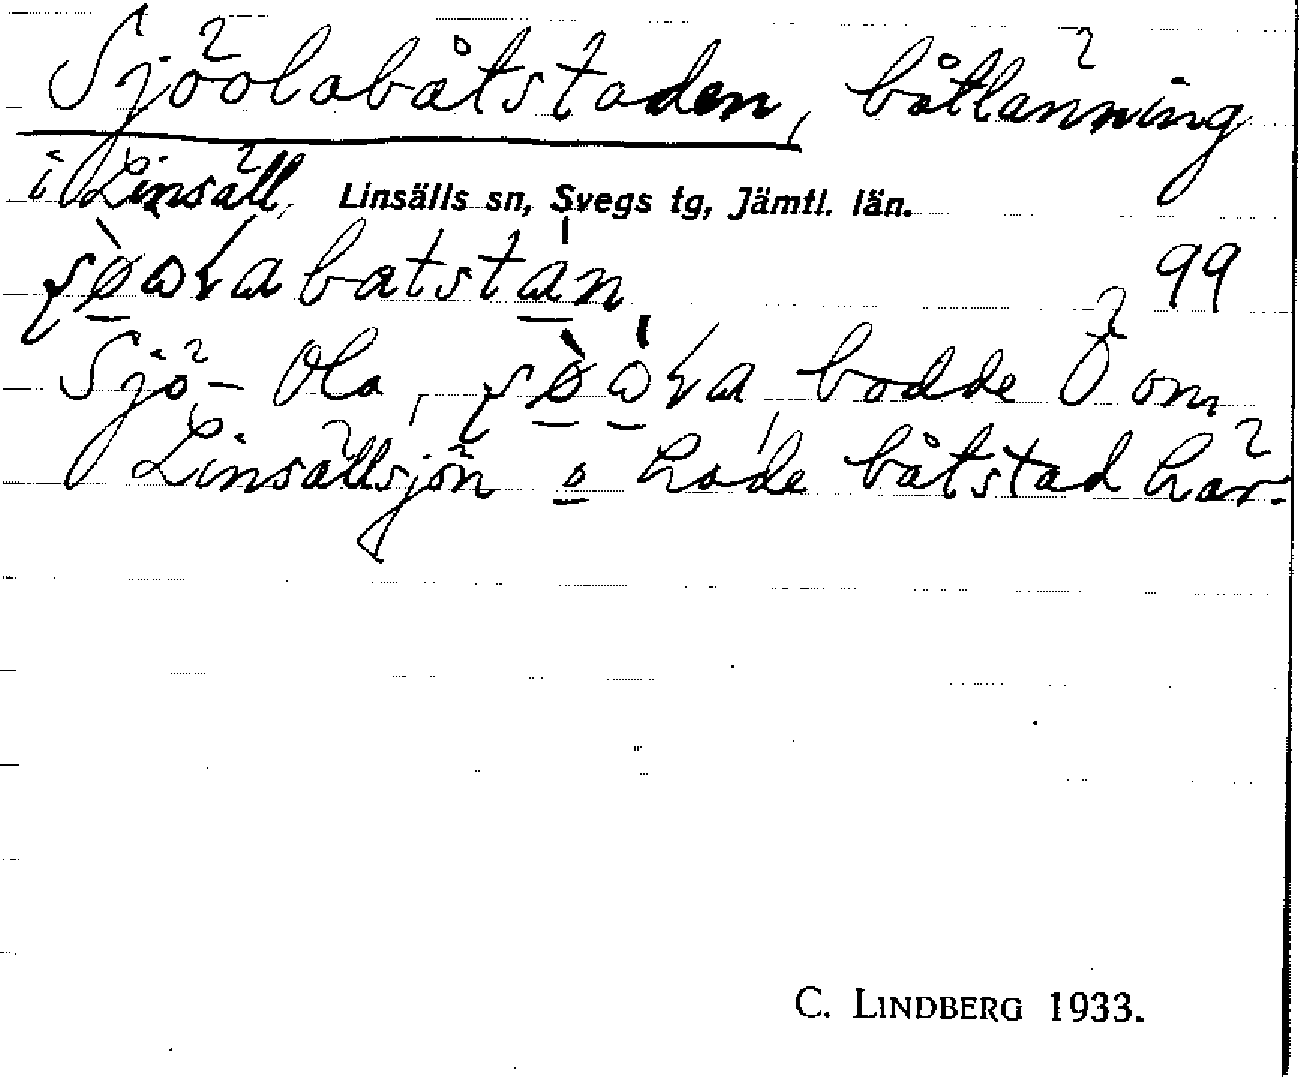 Sjöolabåtstaden, båtlänning
i Linsäll, Linsälls sn, Svegs tg, Jämtl. län.
99
Sjö-Ola, bodde Ö om
Linsällsjön o hade båtstad här.
C. LINDBERG 1933.